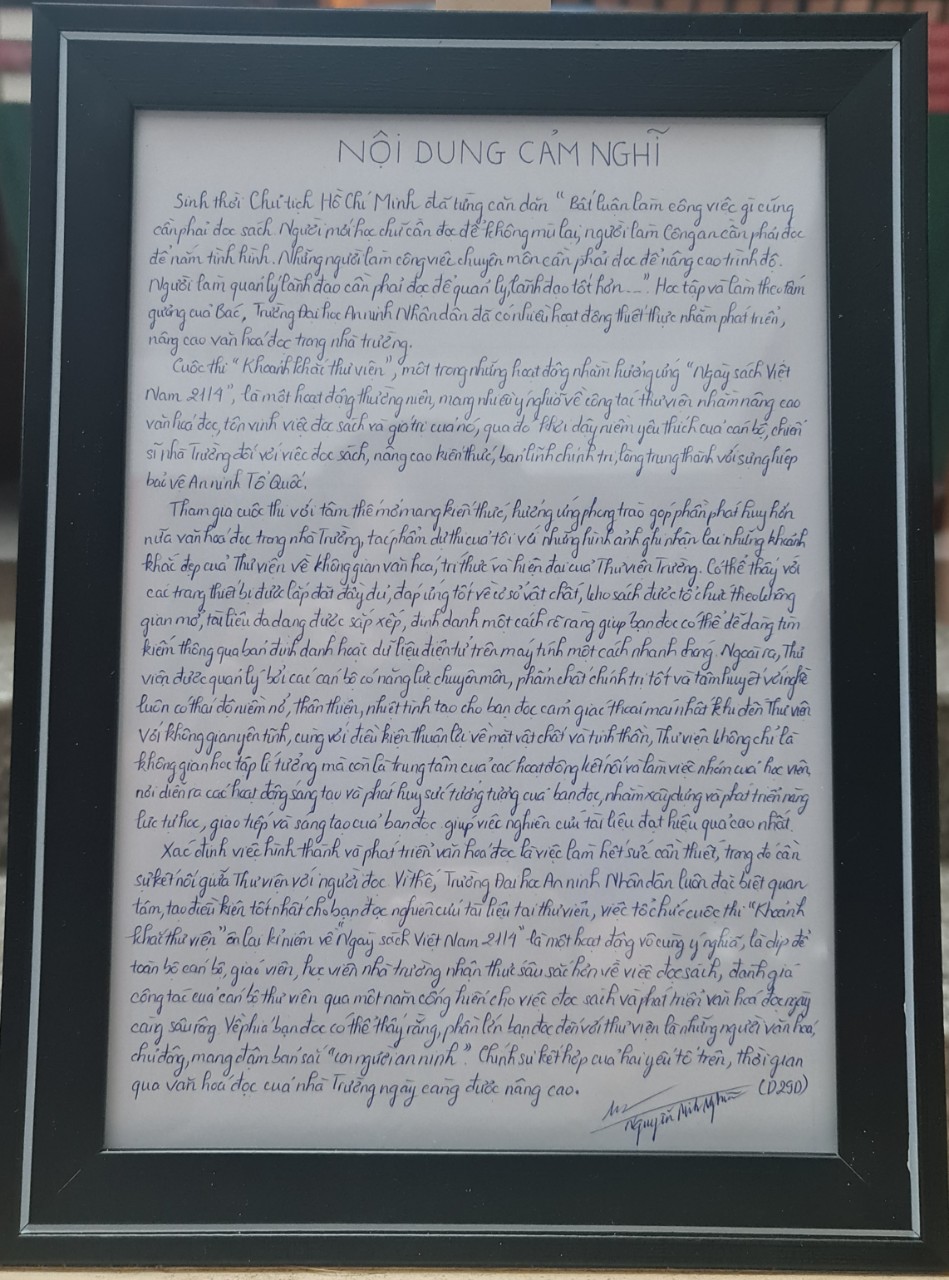 NỘI DUNG CẢM NGHĨ
Sinh thời Chủ tịch Hồ Chí Minh đã từng căn dặn "Bất luận làm công việc gì cũng
cần phải đọc sách. Người mới học chữ cần đọc để không mù lại, người làm Công an cần phải đọc
để nắm tình hình. Những người làm công việc chuyên môn cần phải đọc để nâng cao trình độ.
Người làm quản lý lãnh đạo cần phải đọc để quản lý, lãnh đạo tốt hơn...." Học tập và làm theo tấm
gương của Bác, Trường Đại học An ninh Nhân dân đã có nhiều hoạt động thiết thực nhằm phát triển,
nâng cao văn hoá đọc trong nhà trường.
Cuộc thi "Khoảnh khắc thư viện", một trong những hoạt động nhằm hưởng ứng "Ngày sách Việt
Nam 21/4", là một hoạt động thường niên, mang nhiều ý nghĩa về công tác thư viện nhằm nâng cao
văn hoá đọc, tôn vinh việc đọc sách và giá trị của nó, qua đó khơi dậy niềm yêu thích của cán bộ, chiến
sĩ nhà Trường đối với việc đọc sách, nâng cao kiến thức, bản lĩnh chính trị, lòng trung thành với sự nghiệp
bảo vệ An ninh Tổ Quốc.
Tham gia cuộc thi với tâm thế mở mang kiến thức, hưởng ứng phong trào góp phần phát huy hơn
nữa văn hoá đọc trong nhà Trường, tác phẩm dự thi của tôi với những hình ảnh ghi nhận lại những khoảnh
khắc đẹp của Thư viện về không gian văn hoá, tri thức và hiện đại của Thư viện Trường. Có thể thấy với
các trang thiết bị được lắp đặt đầy đủ, đáp ứng tốt về cơ sở vật chất, kho sách được tổ chức theo không
gian mở, tài liệu đa dạng được sắp xếp, định danh một cách rõ ràng giúp bạn đọc có thể dễ dàng tìm
kiếm thông qua bản định danh hoặc dữ liệu điện tử trên máy tính một cách nhanh chóng. Ngoài ra, Thư
viện được quản lý bởi các cán bộ có năng lực chuyên môn, phẩm chất chính trị tốt và tâm huyết với nghề
luôn có thái độ niềm nở, thân thiện, nhiệt tình tạo cho bạn đọc cảm giác thoải mái nhất khi đến Thư viện
Với không gian yên tĩnh, cùng với điều kiện thuận lợi về mặt vật chất và tinh thần, Thư viện không chỉ là
không gian học tập lí tưởng mà còn là trung tâm của các hoạt động kết nối và làm việc nhóm của học viên,
nơi diễn ra các hoạt động sáng tạo và phát huy sức tưởng tượng của bạn đọc, nhằm xây dựng và phát triển năng
lực tự học, giao tiếp và sáng tạo của bạn đọc giúp việc nghiên cứu tài liệu đạt hiệu quả cao nhất.
Xác định việc hình thành và phát triển văn hoá đọc là việc làm hết sức cần thiết, trong đó cần
sự kết nối giữa Thư viện với người đọc. Vì thế, Trường Đại học An ninh Nhân dân luôn đặc biệt quan
tâm, tạo điều kiện tốt nhất cho bạn đọc nghiên cứu tài liệu tại thư viện, việc tổ chức cuộc thi "Khoảnh
khắc thư viện" ôn lại kỉ niệm về "Ngày sách Việt Nam 21/4" là một hoạt động vô cùng ý nghĩa, là dịp để
toàn bộ cán bộ, giáo viên, học viên nhà trường nhận thức sâu sắc hơn về việc đọc sách, đánh giá
công tác của cán bộ thư viện qua một năm cống hiến cho việc đọc sách và phát triển văn hoá đọc ngày
càng sâu rộng. Về phía bạn đọc có thể thấy rằng, phần lớn bạn đọc đến với thư viện là những người văn hoá,
chủ động, mang đậm bản sắc "con người an ninh". Chính sự kết hợp của hai yếu tố trên, thời gian
qua văn hoá đọc của nhà Trường ngày càng được nâng cao.
(D29D)
Nguyễn Minh Nghĩa